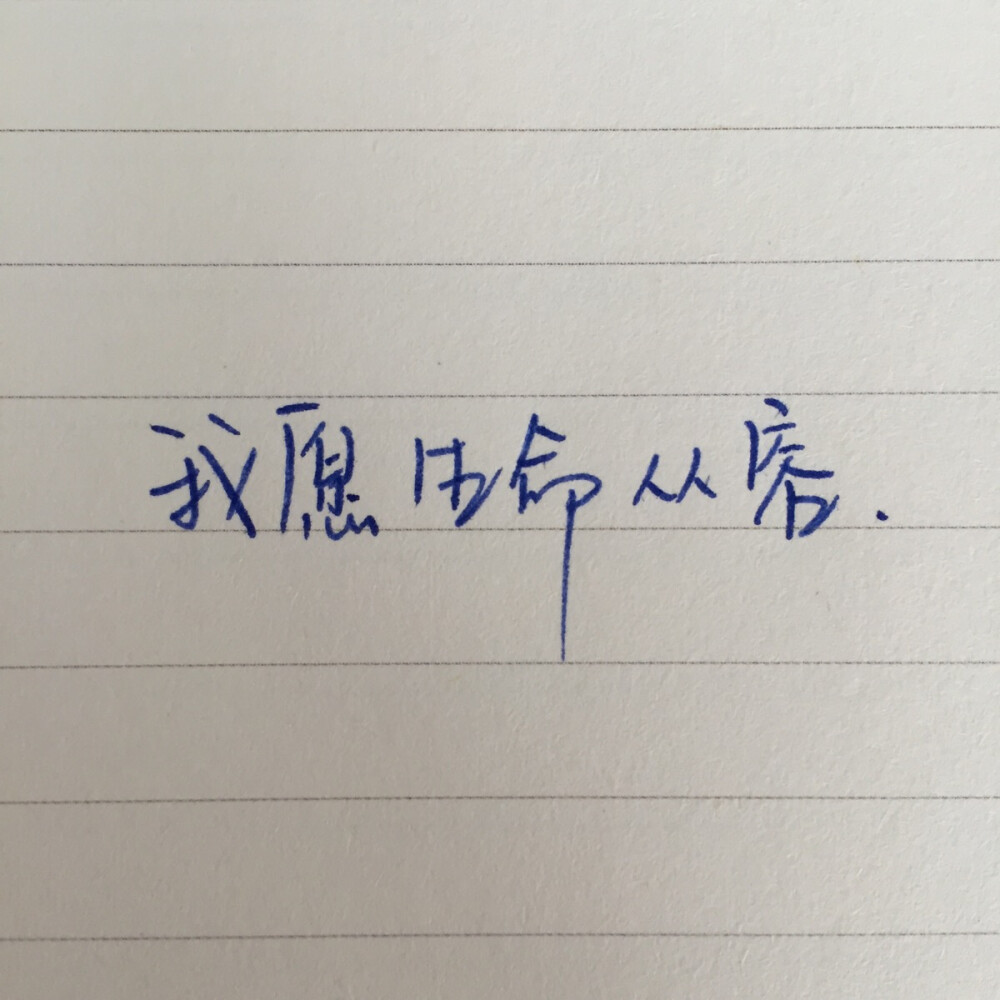 我愿生命从容.